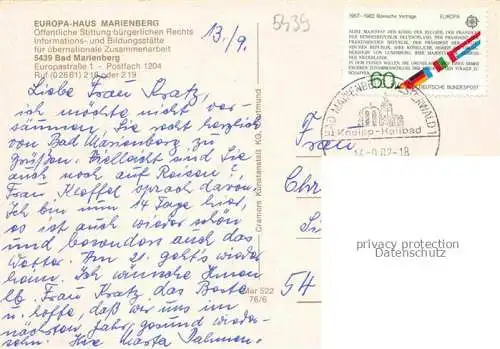 EUROPA-HAUS MARIENBERG
Öffentliche Stiftung bürgerlichen Rechts
Informations- und Bildungsstätte
für übernationale Zusammenarbeit
5439 Bad Marienberg
Europastraße 1 - Postfach 1204
Ruf (02661) 218 oder 219
5439
13./9.
Liebe Frau Kratz,
ich möchte nicht ver-
säumen, Sie recht herzlich
von Bad Marienberg zu
grüßen. Vielleicht sind Sie
auch noch auf Reisen?,
Frau Kloffel sprach davon.
Ich bin nun 14 Tage hier,
es ist auch wieder schön
und besonders auch das
Wetter. Am 21. geht's wieder
heim. Ich wünsche Ihnen
lb. Frau Kratz das Beste
u. hoffe, daß wir uns im
nächsten Jahr, gesund wieder-
sehn. Ihre Marta
Cramers Kunstanstalt KG, Dortmund
Mar 522
76/6
1957-1982 Römische Verträge
EUROPA
60
DEUTSCHE BUNDESPOST
BAD MARIENBERG, WESTERWALD 1
Kneipp-Heilbad
82-18
Frau
Chr
54
privacy protection
Datenschutz